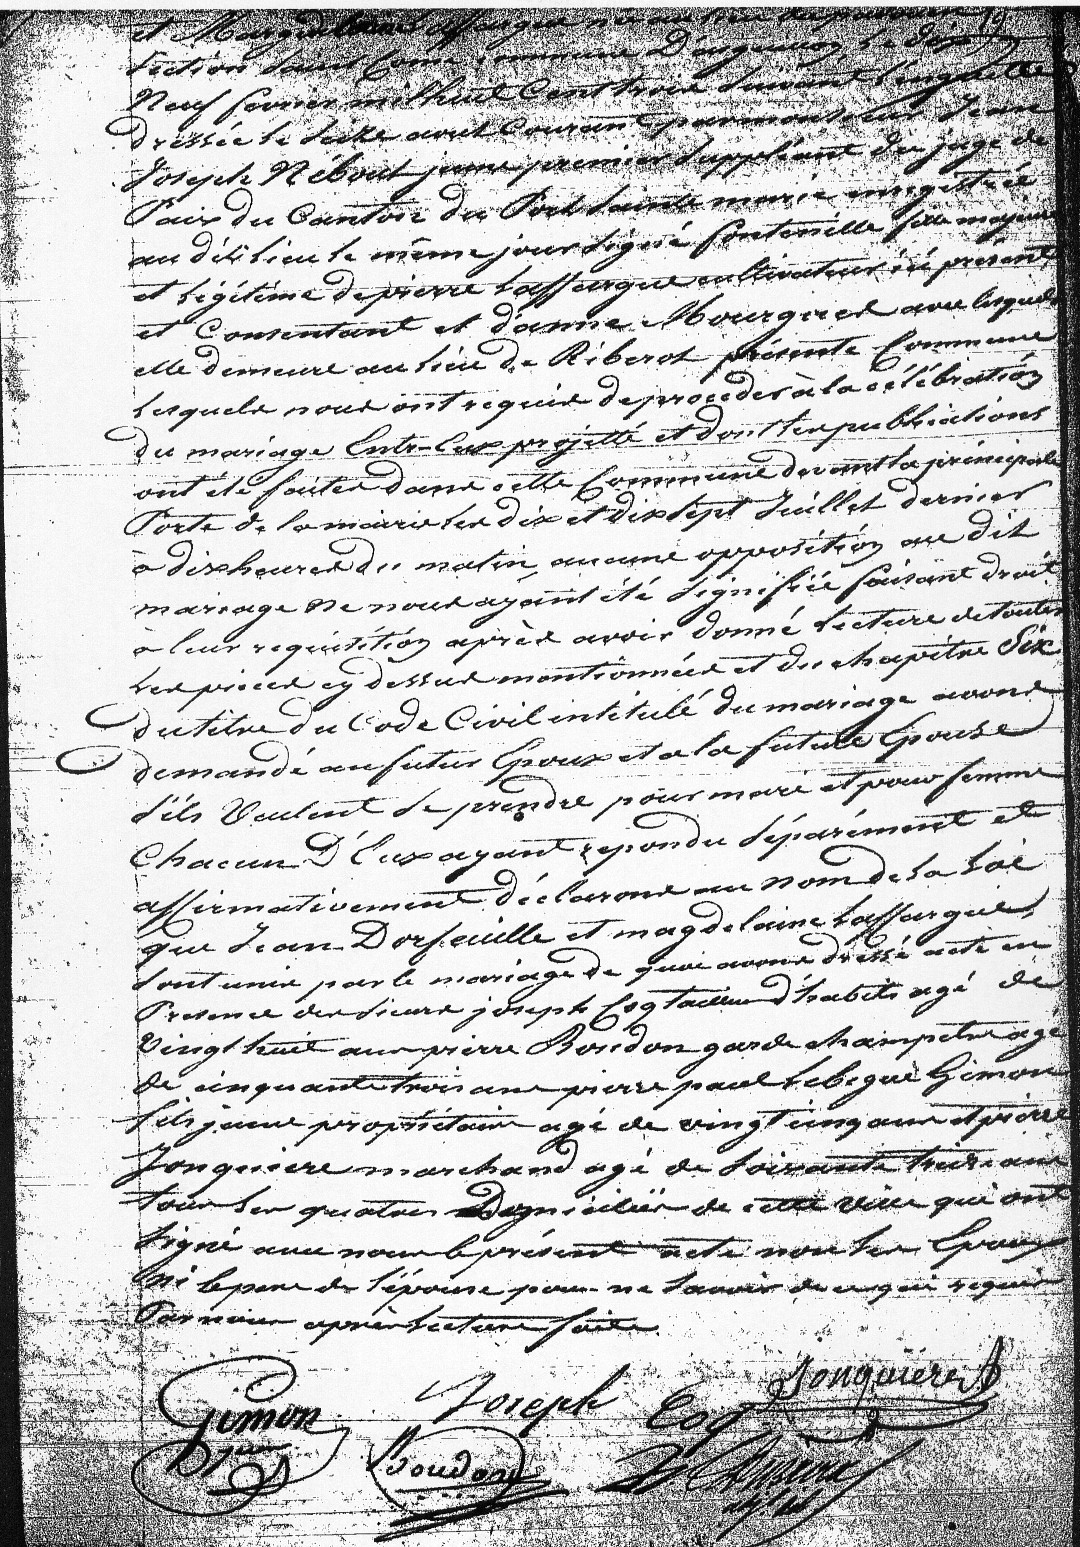 et Magdelaine Laffargue née au lieu de
section Saint Come commune D'aiguillon, le dix
Neuf fevrier mil huit Cent trois suivant l'enquette
dressée le seize aout Courant par monsieur Jean
Joseph Nébout jeune premier suppléant du juge de
Paix du Canton du Port Sainte marie enregistrée
au dit lieu le même jour signé fontenille fille majeure
et légitime de pierre Laffargue cultivateur ici présent
et Consentant et d'anne Mourgues avec lesquels
elle demeure au lieu de Riberot présente Commune
lesquels nous ont requis de proceder à la célébration
du mariage Entr-Eux projetté et dont les publications
ont été faites dans cette Commune devant la principale
Porte de la mairie les dix et dix sept Juillet dernier
à dix heures du matin, aucune opposition au dit
mariage ne nous ayant été signifiée faisant droit
à leur requisition après avoir donné lecture de toutes
les pieces cy dessus mentionnées et du chapitre Six
du titre du Code Civil intitulé du mariage avons
demandé au futur Epoux et a la future Epouse
s'ils Veulent se prendre pour mari et pour femme
Chacun D'Eux ayant repondu séparément et
affirmativement déclarons au nom de la Loi
que Jean Dorfeuille et magdelaine Laffargue,
sont unis par le mariage de quoi avons dressé acte en
Presence des sieurs joseph Coq tailleur d'habits agé de
Vingt huit ans pierre Boudon garde champêtre agé
de cinquante trois ans pierre paul Lebegue Gimon
fils jeune propriétaire agé de vingt cinq ans et pierre
Jonquiere marchand agé de soixante treize ans
tous les quatres Domiciliés de cette ville qui ont
signé avec nous le présent acte non les Epoux
Ni le pere de l'épouse pour ne savoir de ce qui requis
Par nous après lecture faite.
Gimon Joseph Coq Jonquiere
jeune Boudon